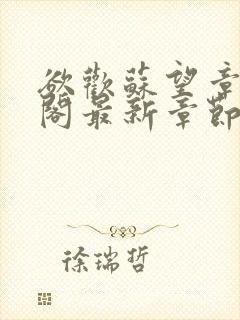 欲歡蘇望章
閣最新章節
徐瑞哲